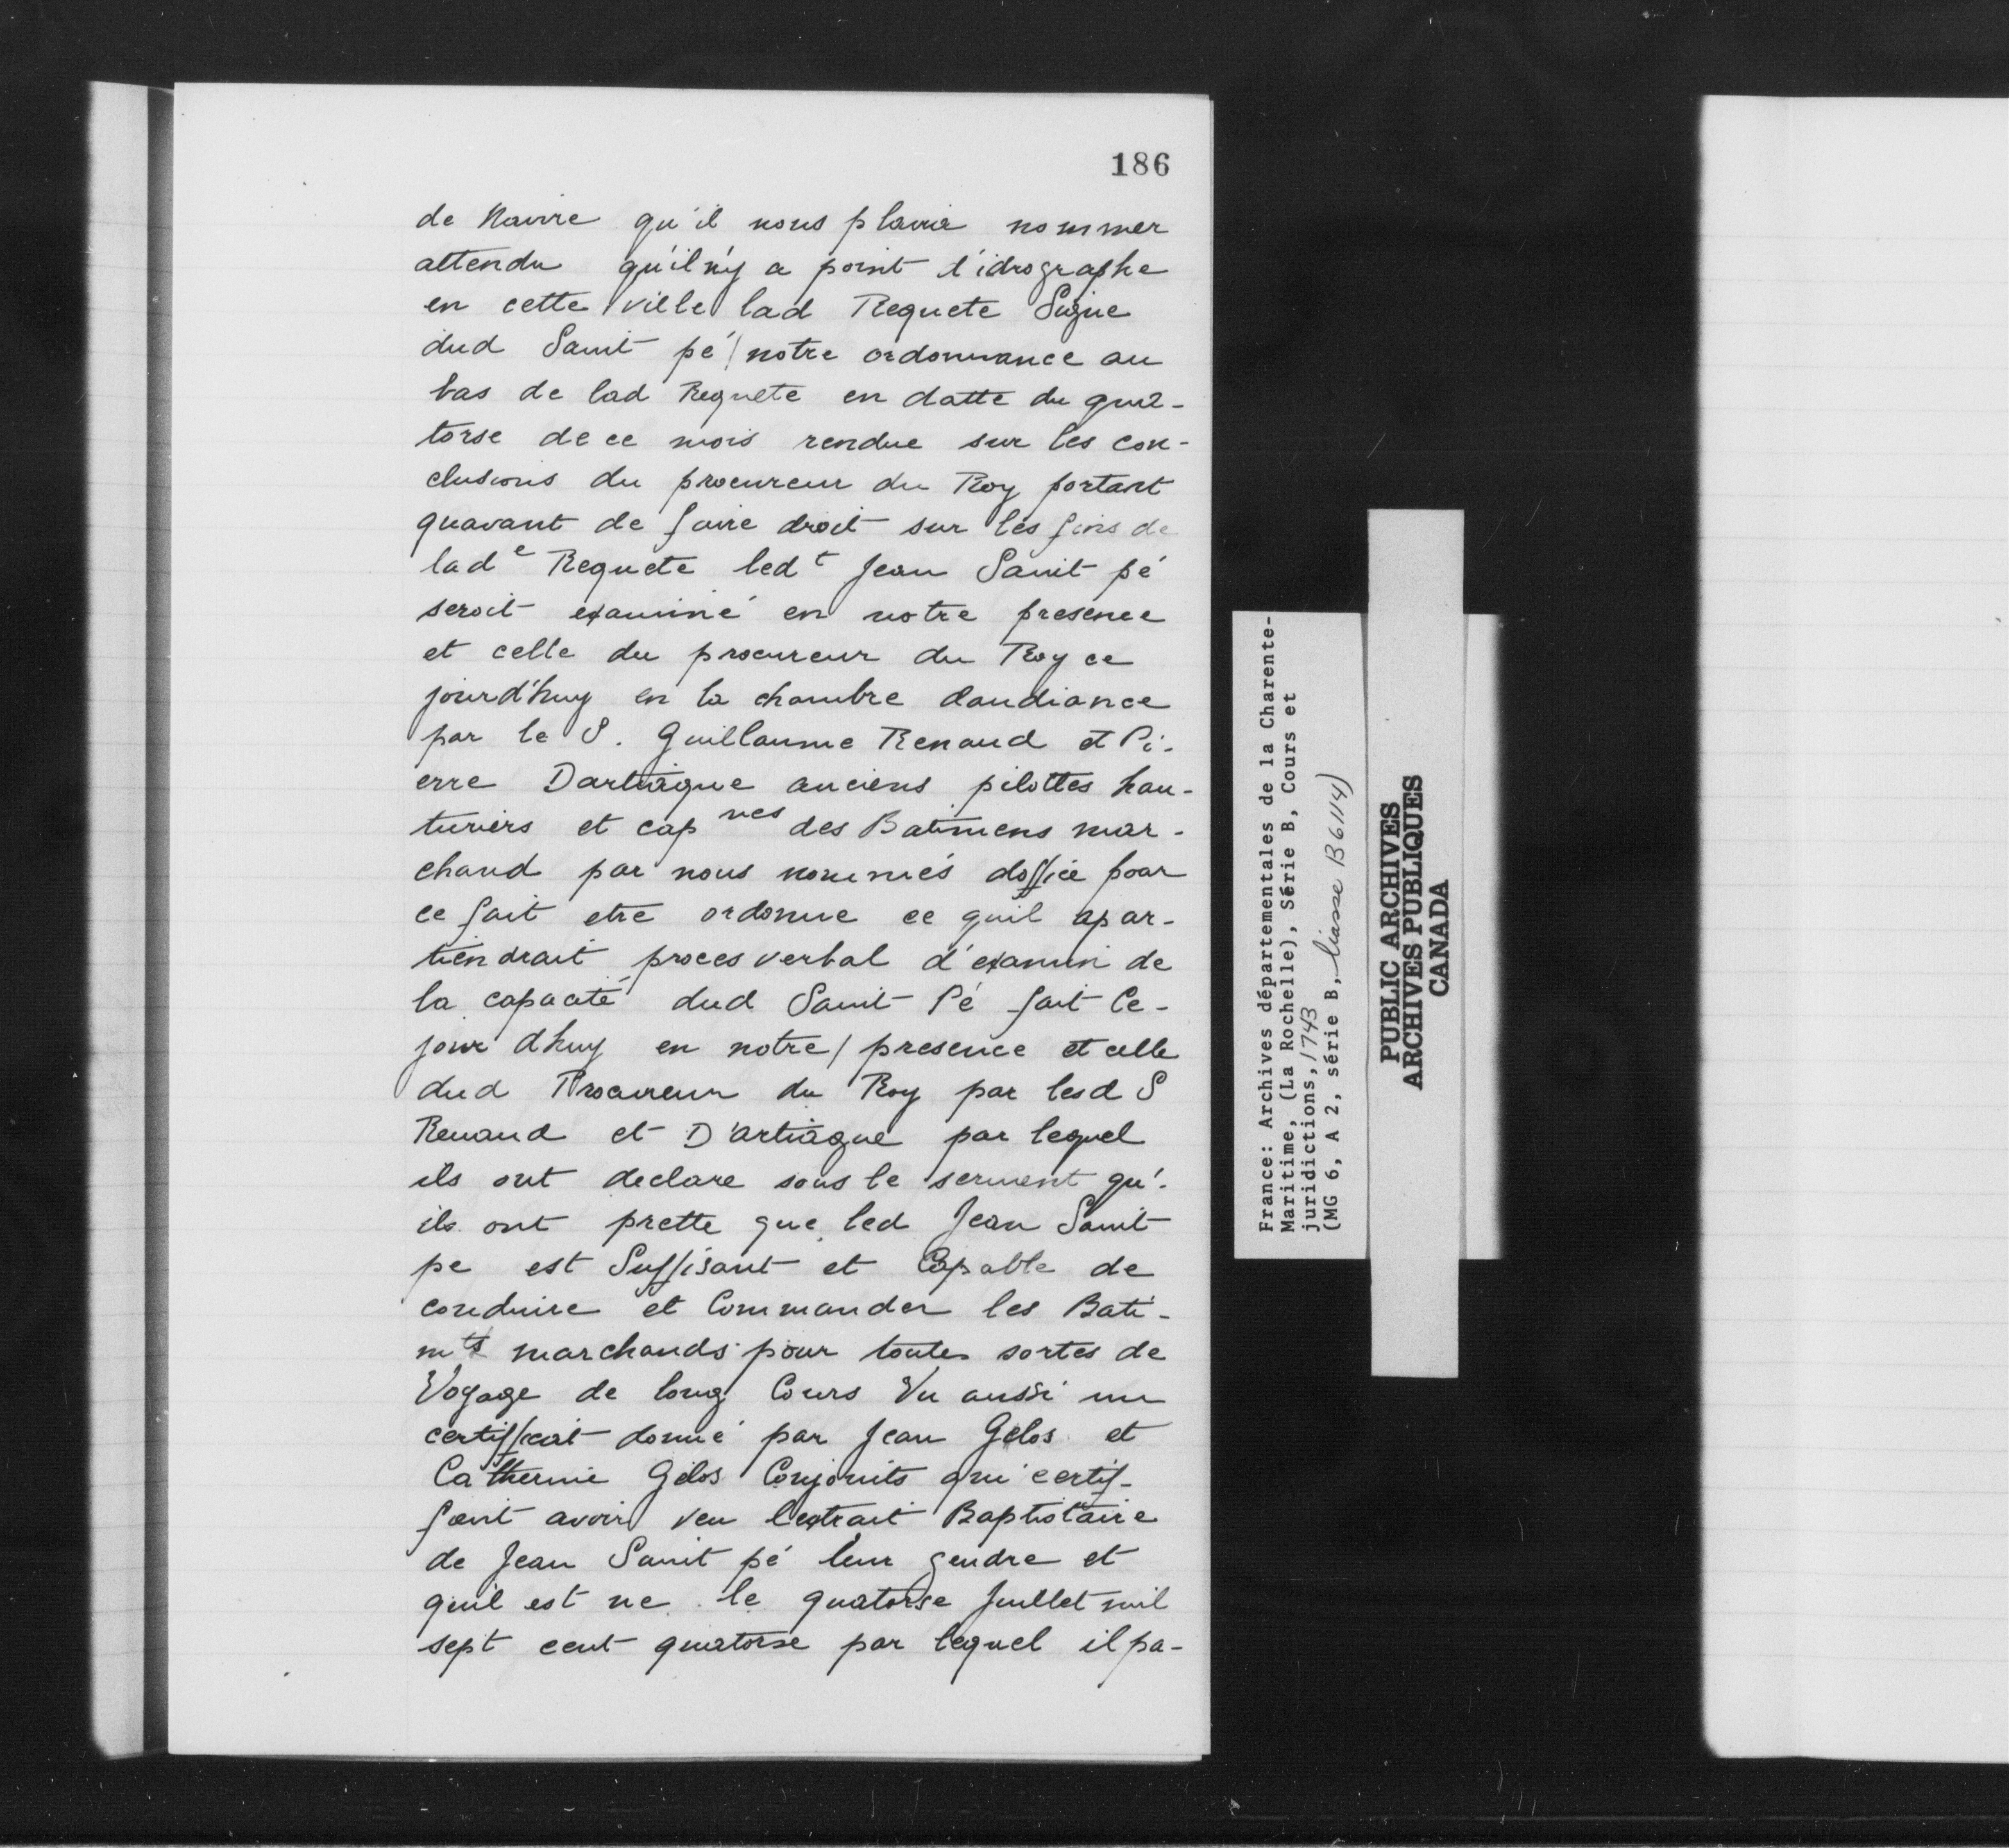 186
de Navire qu'il nous plaira nommer
attendu qu'il n'y a point d'idrographe
en cette ville lad Requete Signe
dud Saint pé / notre ordonnance au
bas de lad Requete en datte du qua-
torse de ce mois rendue sur les con-
clusions du procureur du Roy portant
quavant de faire droit sur les fins de
lad e Requete led t Jean Saint pé
seroit examiné en notre presence
et celle du procureur du Roy ce
jourd'huy en la chambre daudiance
par le S. Guillaume Renaud et Pi-
erre Dartiague anciens pilottes hau-
turiers et cap nes des Batimens mar-
chand par nous nommés doffice pour
ce fait etre ordonne ce quil apar-
tiendrait proces verbal d'examin de
la capacité dud Saint Pé fait Ce-
jour dhuy en notre / presence et celle
dud Procureur du Roy par lesd S
Renaud et D'artiague par lequel
ils ont declare sous le serment qu'-
ils ont prette que led Jean Saint
pe est Suffisant et Capable de
conduire et Commander les Bati-
mts marchands pour toutes sortes de
Voyage de long Cours Vu aussi un
certifficat donné par Jean Gelos et
Catherine Gelos Conjoints qui certif-
fient avoir veu lextrait Baptistaire
de Jean Saint pé leur gendre et
quil est ne le quatorse Juillet mil
sept cent quatorse par lequel il pa-
France: Archives départementales de la Charente-
Maritime, (La Rochelle), Série B, Cours et
juridictions, 1743
(MG 6, A 2, série B, liasse B6114)
PUBLIC ARCHIVES
ARCHIVES PUBLIQUES
CANADA